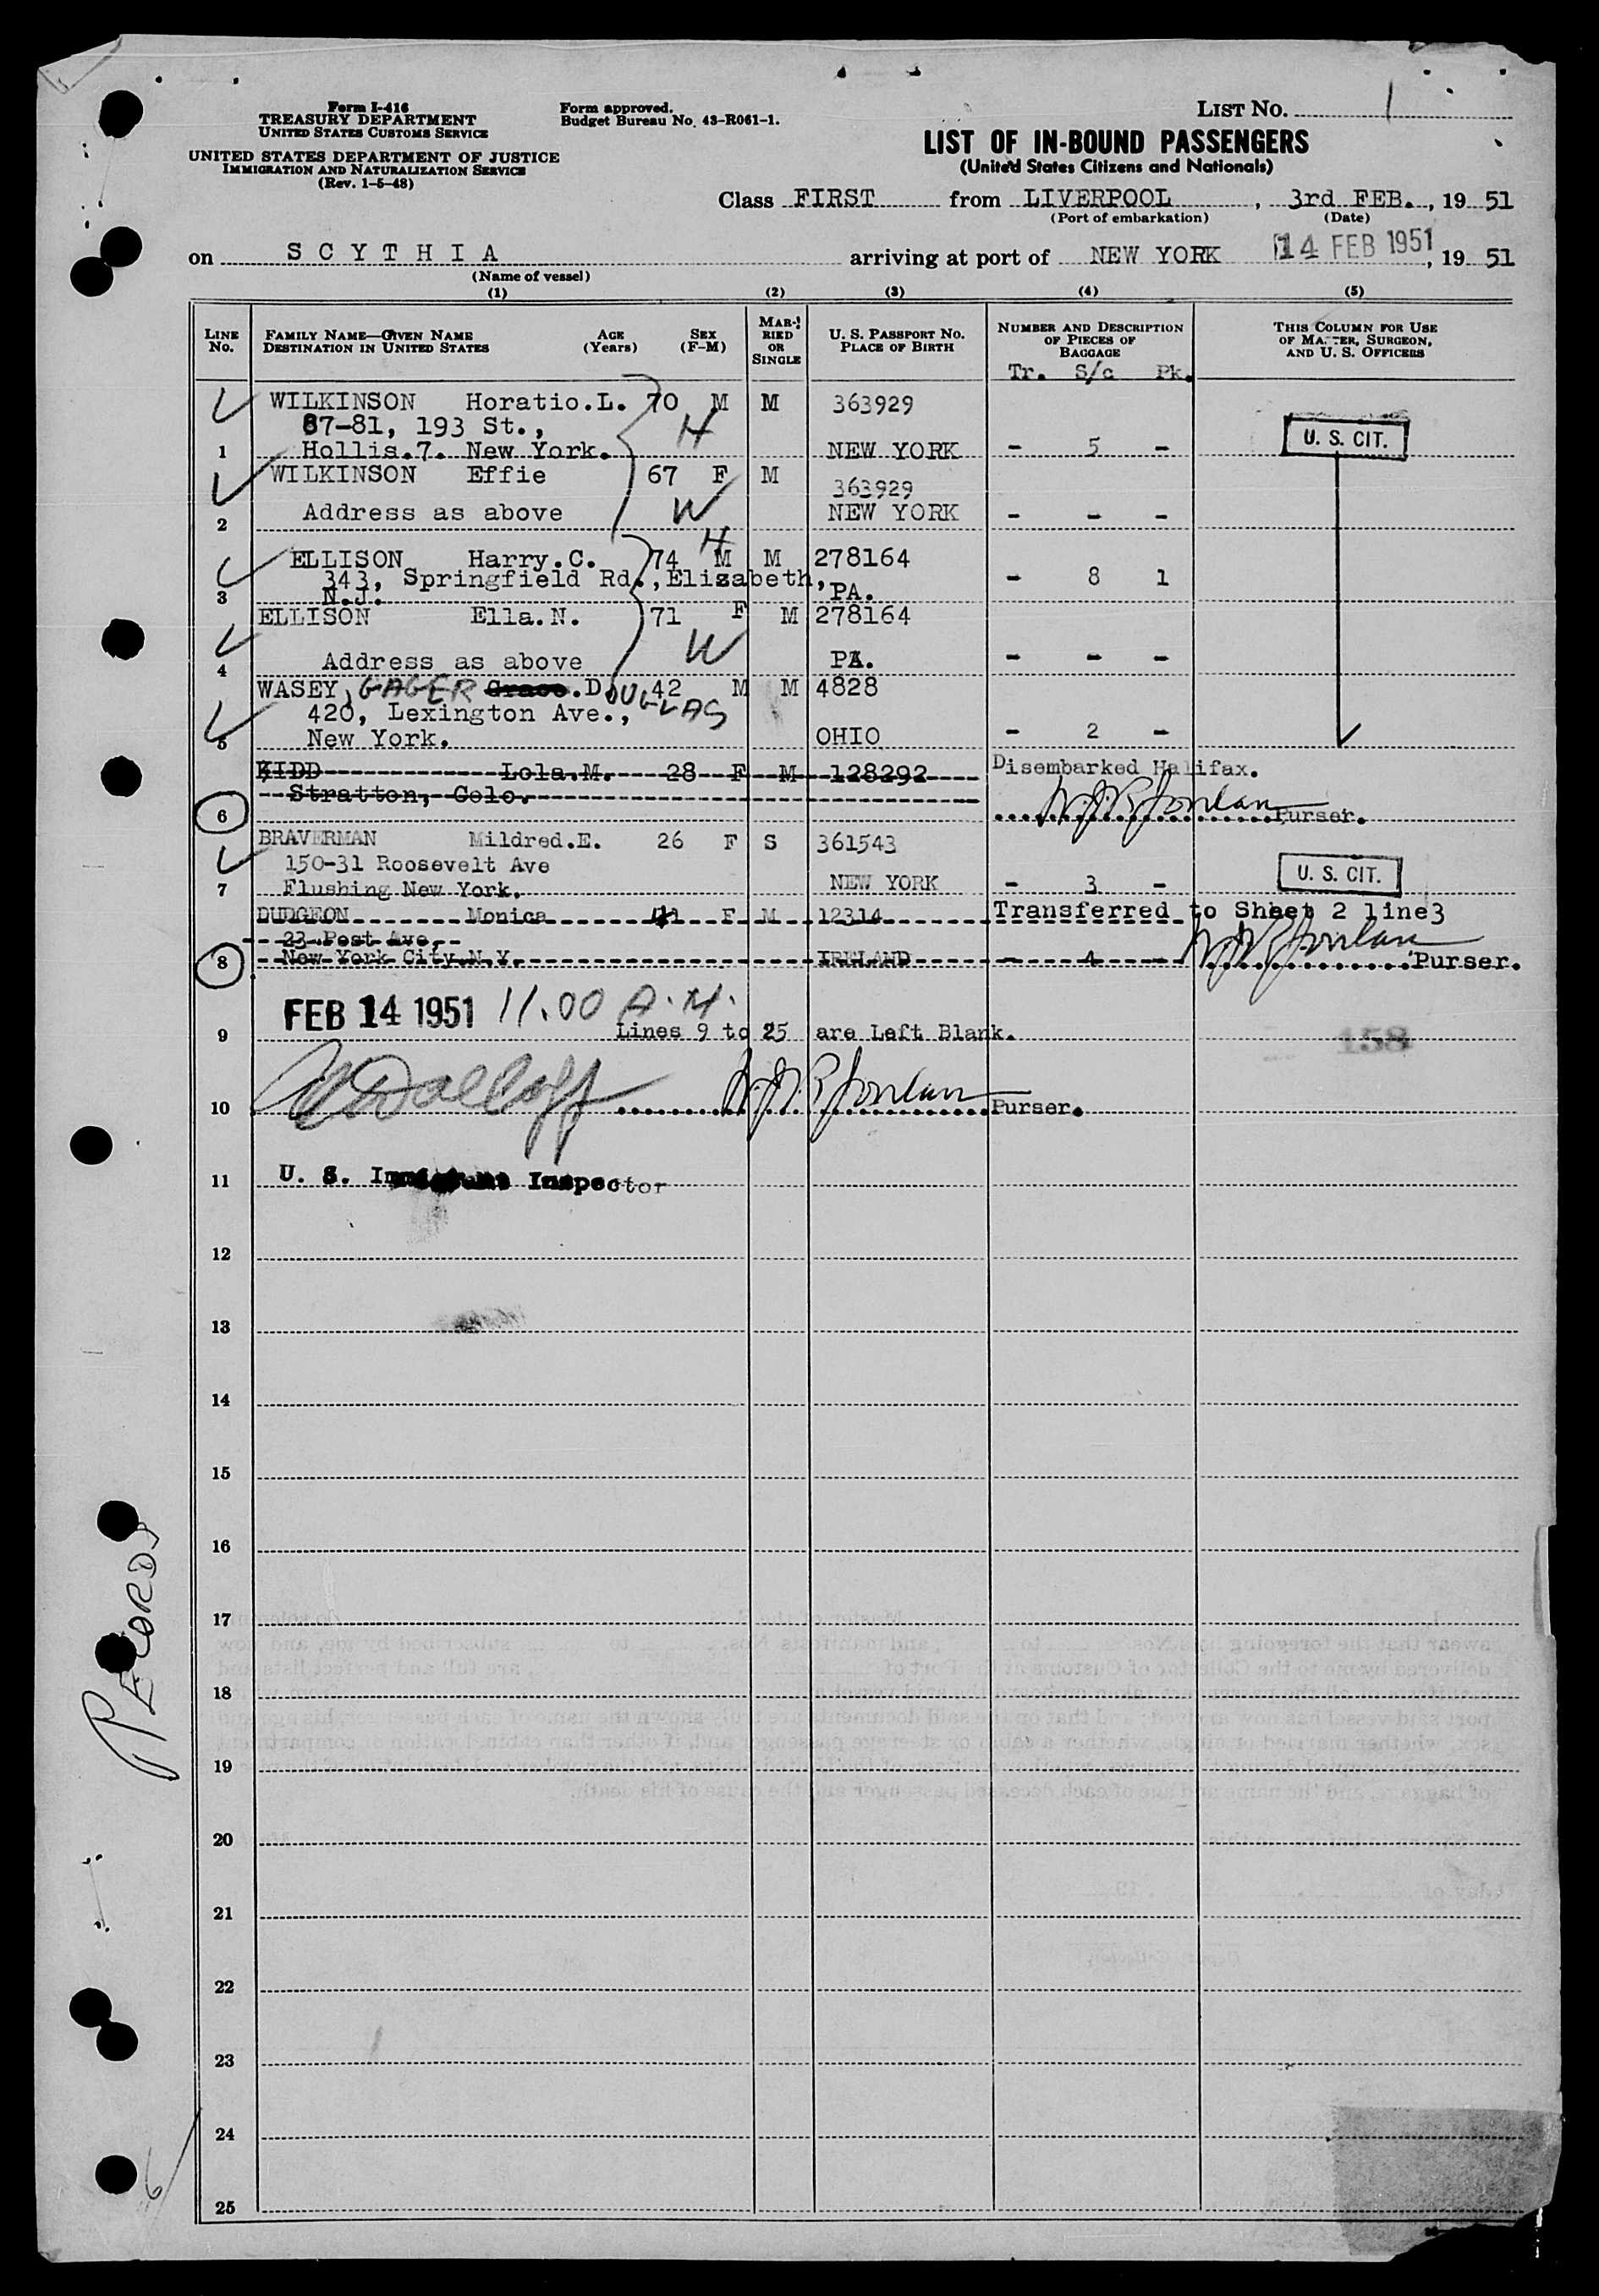 Form I-416
TREASURY DEPARTMENT
UNITED STATES CUSTOMS SERVICE
UNITED STATES DEPARTMENT OF JUSTICE
IMMIGRATION AND NATURALIZATION SERVICE
(Rev. 1-5-48)
Form approved.
Budget Bureau No. 43-R061-1.
LIST NO. 1
LIST OF IN-BOUND PASSENGERS
(United States Citizens and Nationals)
Class FIRST from LIVERPOOL, 3rd FEB., 19 51
(Port of embarkation) (Date)
on SCYTHIA arriving at port of NEW YORK 14 FEB 1951, 19 51
(Name of vessel)
(1) (2) (3) (4) (5)
LINE No. FAMILY NAME—GIVEN NAME DESTINATION IN UNITED STATES AGE (Years) SEX (F-M) MARRIED OR SINGLE U. S. PASSPORT NO. PLACE OF BIRTH NUMBER AND DESCRIPTION OF PIECES OF BAGGAGE THIS COLUMN FOR USE OF MASTER, SURGEON, AND U. S. OFFICERS
Tr. S/c Pk.
WILKINSON Horatio.L. 70 M M 363929
87-81, 193 St., H
1 Hollis.7. New York. NEW YORK - 5 - U. S. CIT.
WILKINSON Effie 67 F M 363929
2 Address as above W NEW YORK - - -
ELLISON Harry.C. 74 M H M 278164
343, Springfield Rd., Elizabeth, - 8 1
3 N.J. PA.
ELLISON Ella.N. 71 F M 278164
4 Address as above W PA. - - -
WASEY, GAGER Grace.D.OUGLAS 42 M M 4828
420, Lexington Ave.,
5 New York. OHIO - 2 -
KIDD Lola.M. 28 F M 128292 Disembarked Halifax.
Stratton, Colo.
6 Purser.
BRAVERMAN Mildred.E. 26 F S 361543
150-31 Roosevelt Ave
7 Flushing New York. NEW YORK - 3 - U. S. CIT.
DUDGEON Monica 41 F M 12314 Transferred to Sheet 2 line3
23 Post Ave,
8 New York City.N.Y. IRELAND - 4 - Purser.
FEB 14 1951 11.00 A.M.
9 Lines 9 to 25 are Left Blank. 158
10 Purser.
11 U. S. Inspector
12
13
14
15
16
17
18
19
20
21
22
23
24
25
RECORDS
6